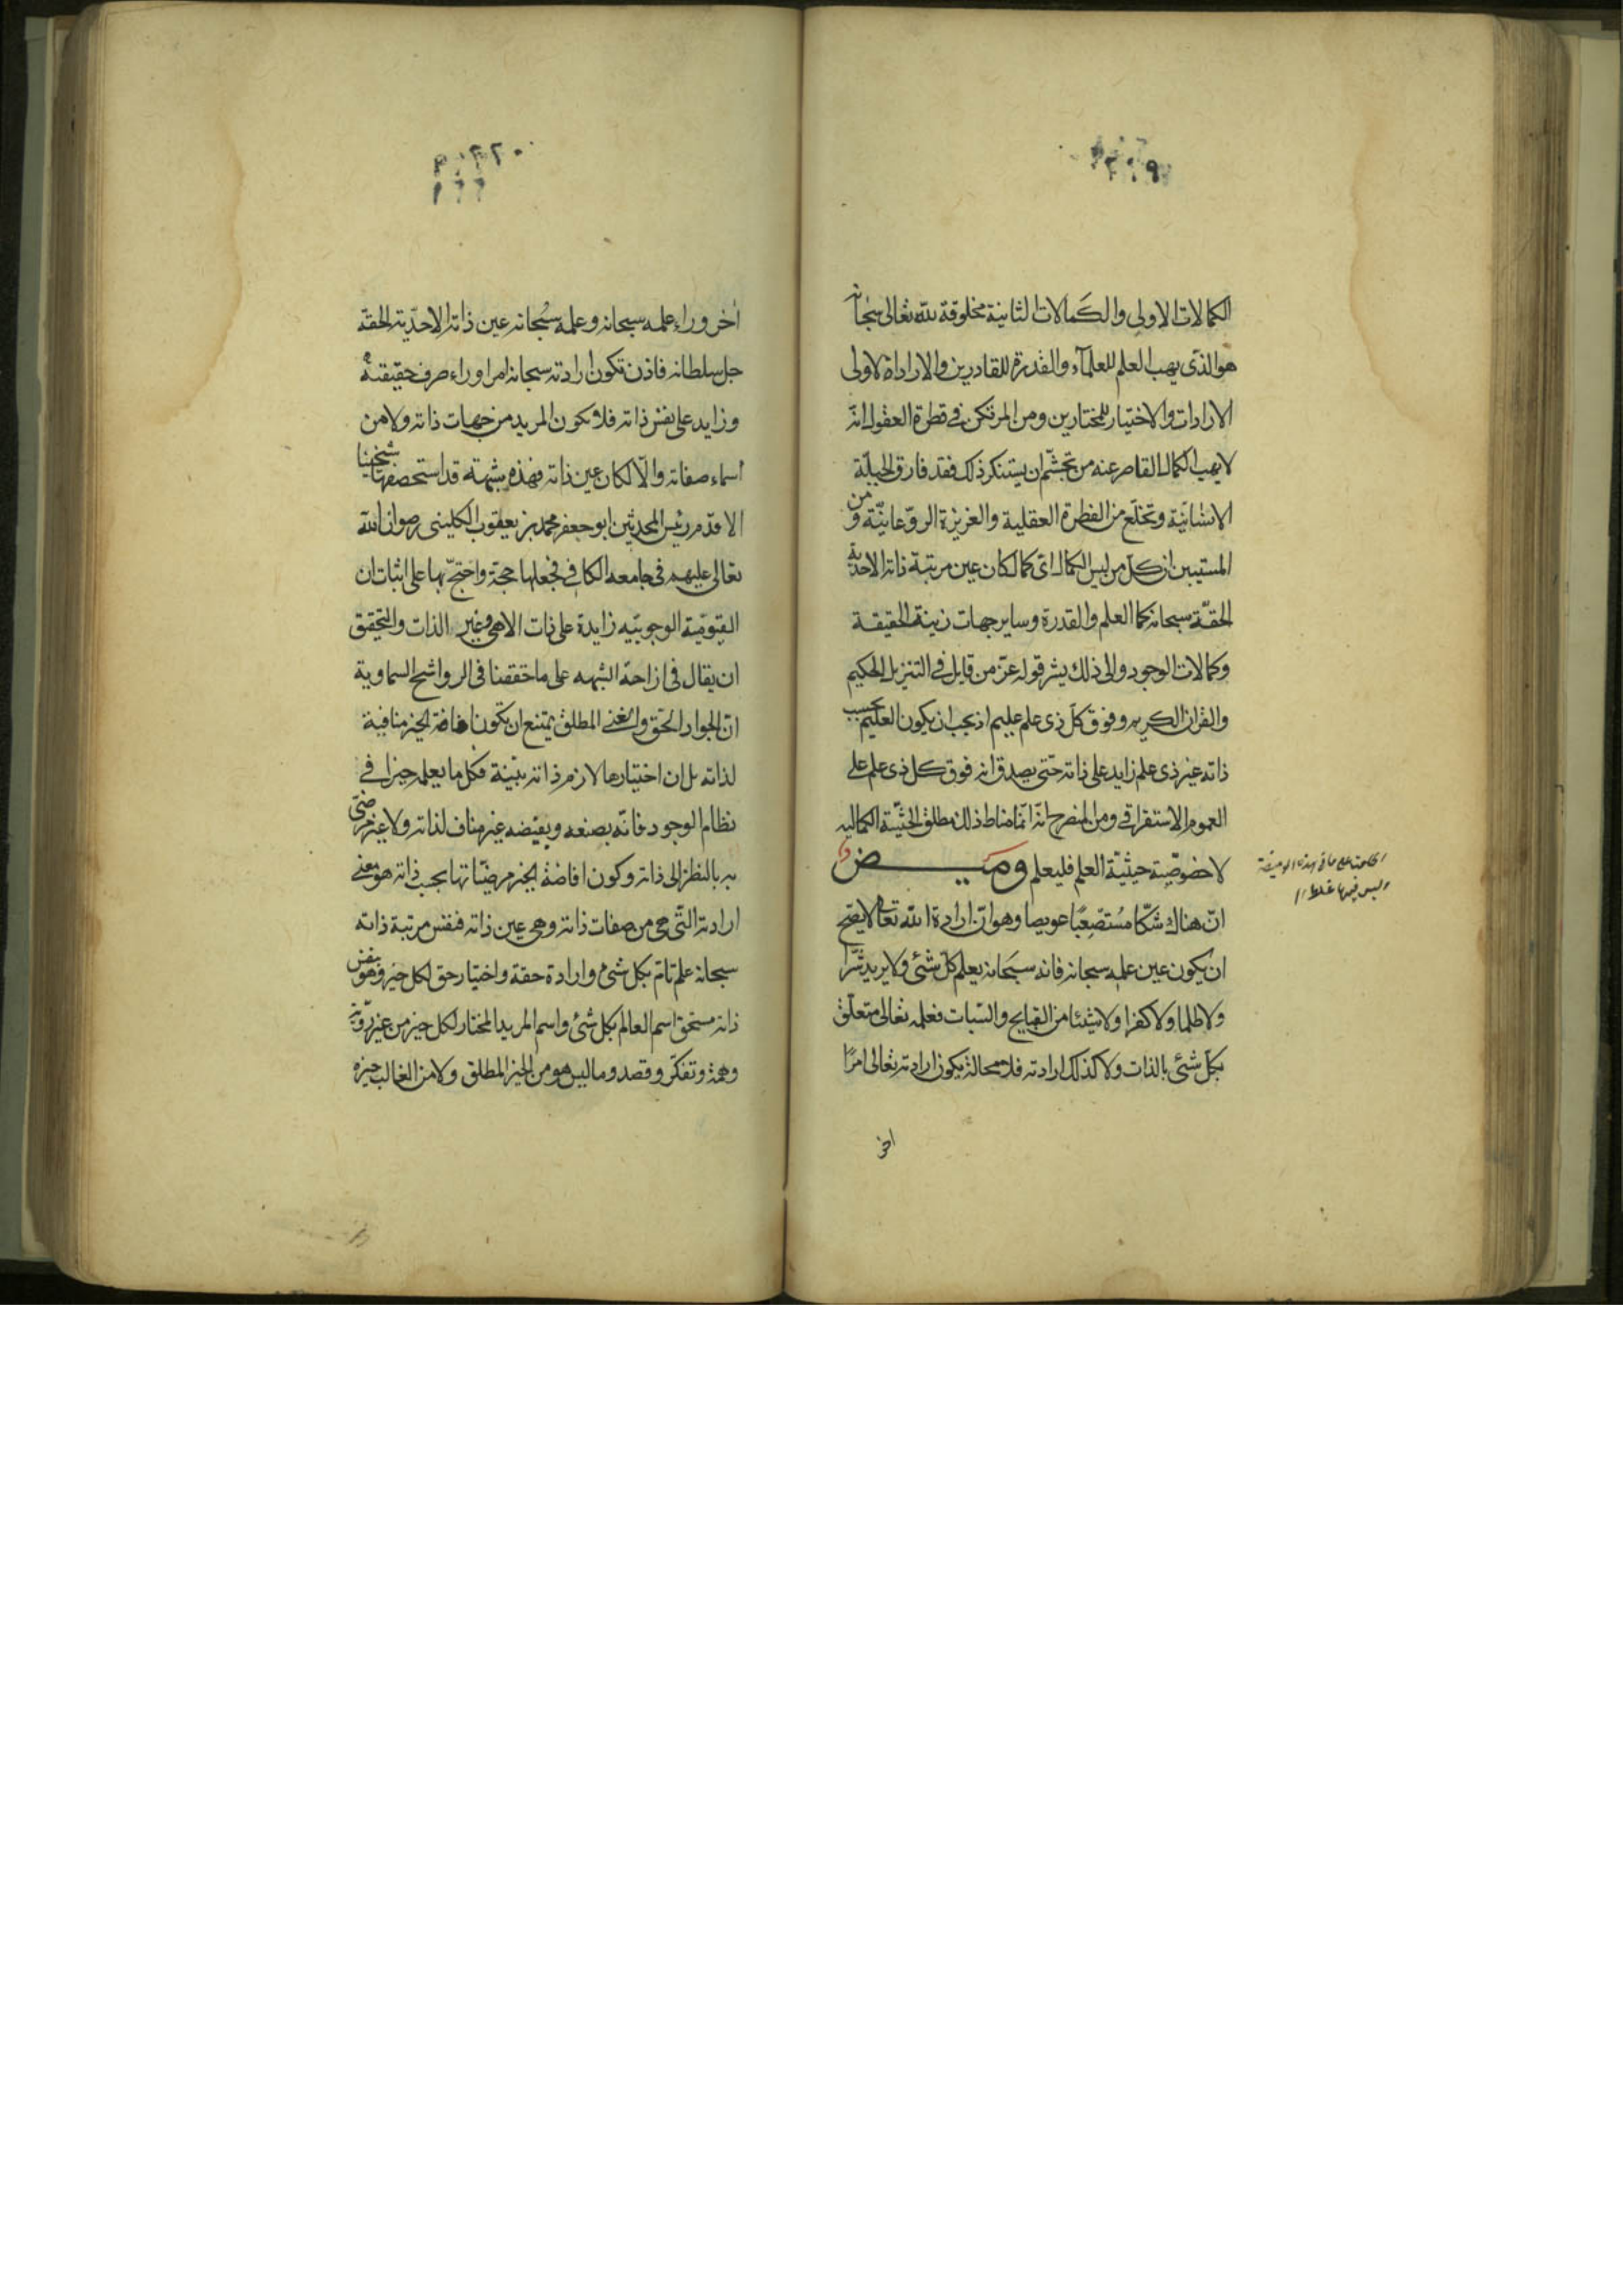 الكمالات الاولى والكمالات الثانية مخلوقة لله تعالى سبحانه
هو الذى يهب العلم للعلمآء والقدرة للقادرين والارادات لاولى
الارادات والاختيار للمختارين ومن المرتكن فى فطرة العقول انه
لا يهب الكمال القاصر عنه من تجشّم ان يستنكر ذلك فقد فارق الجبلّة
الانسانيّة وتخلّع من الفطرة العقلية والغريزة الروعانيّة ومن
المستبين ان كل من ليس الكمال اى كمال كان عين مرتبة ذاته الاحدية
الحقّة سبحانه كما العلم والقدرة وساير جهات زينة الحقيقة
وكمالات الوجود والى ذلك يشر قوله عزّ من قايل فى التنزيل الحكيم
والقران الكريم وفوق كلّ ذى علم عليم اذ يجب ان يكون العليم بحسب
ذاته غير ذى علم زايد على ذاته حتى يصدق انه فوق كل ذى علم على
العموم الاستغراقى ومن المنصرح انه انّما مناط ذلك مطلق الحيثيّة الكماليه
لا خصوصيّة حيثيّة العلم فليعلم وميض
انّ هناك شكّا مُستصعبًا عويصا وهو انّ ارادة الله تعالى لا يصح
ان يكون عين علمه سبحانه فانه سبحانه يعلم كل شئى ولا يريد شرّا
ولا ظلما ولا كفرا ولا شيئا من القبايح والسّيات فعلمه تعالى متعلّق
بكلّ شئى بالذات ولا كذلك ارادته فلا محالة يكون ارادته تعالى امرًا
اخر
اخر وراء علمه سبحانه وعلمه سبحانه عين ذاته الاحدّية الحقة
جل سلطانه فاذن تكون ارادته سبحانه امرا وراء صرف حقيقته
وزايد على نفس ذاته فلا يكون المريد من جهات ذاته ولا من
اسماء صفاته والّا لكان عين ذاته فهذه شبهة قد استحصفها شيخنا
الاقدم رئيس المحدثين ابو جعفر محمد بن يعقوب الكلينى رضوان الله
تعالى عليهم فى جامعه الكافى فجعلها حجة واحتجّ بها على اثبات ان
القيوميّة الوجوبيّه زايدة على ذات الاهى وغير الذات والتحقيق
ان يقال فى ازاحة الشبهه على ما حققنا فى الرواشح السماوية
انّ الجواد الحق والغنى المطلق يمتنع ان تكون افاضة الخير منافية
لذاته بل ان اختيارها لازم ذاته بيّنة فكل ما يعلمه خيرا فى
نظام الوجود فانّه يصنعه ويفيضه غير مناف لذاته ولا غير مرضىّ
به بالنظر الى ذاته وكون افاضة الخير مرضيّا بها بحسب ذاته هو معنى
ارادته التّى هى من صفات ذاته وهى عين ذاته فنفس مرتبة ذاته
سبحانه علم تامّ بكل شئ وارادة حقة واختيار حق لكل خير وهو بنفس
ذاته مستحق اسم العالم بكل شئ واسم المريد المختار لكل خير من غير رويّة
وهمّة وتفكّر وقصد وما ليس هو من الخير المطلق ولا من الغالب خيره